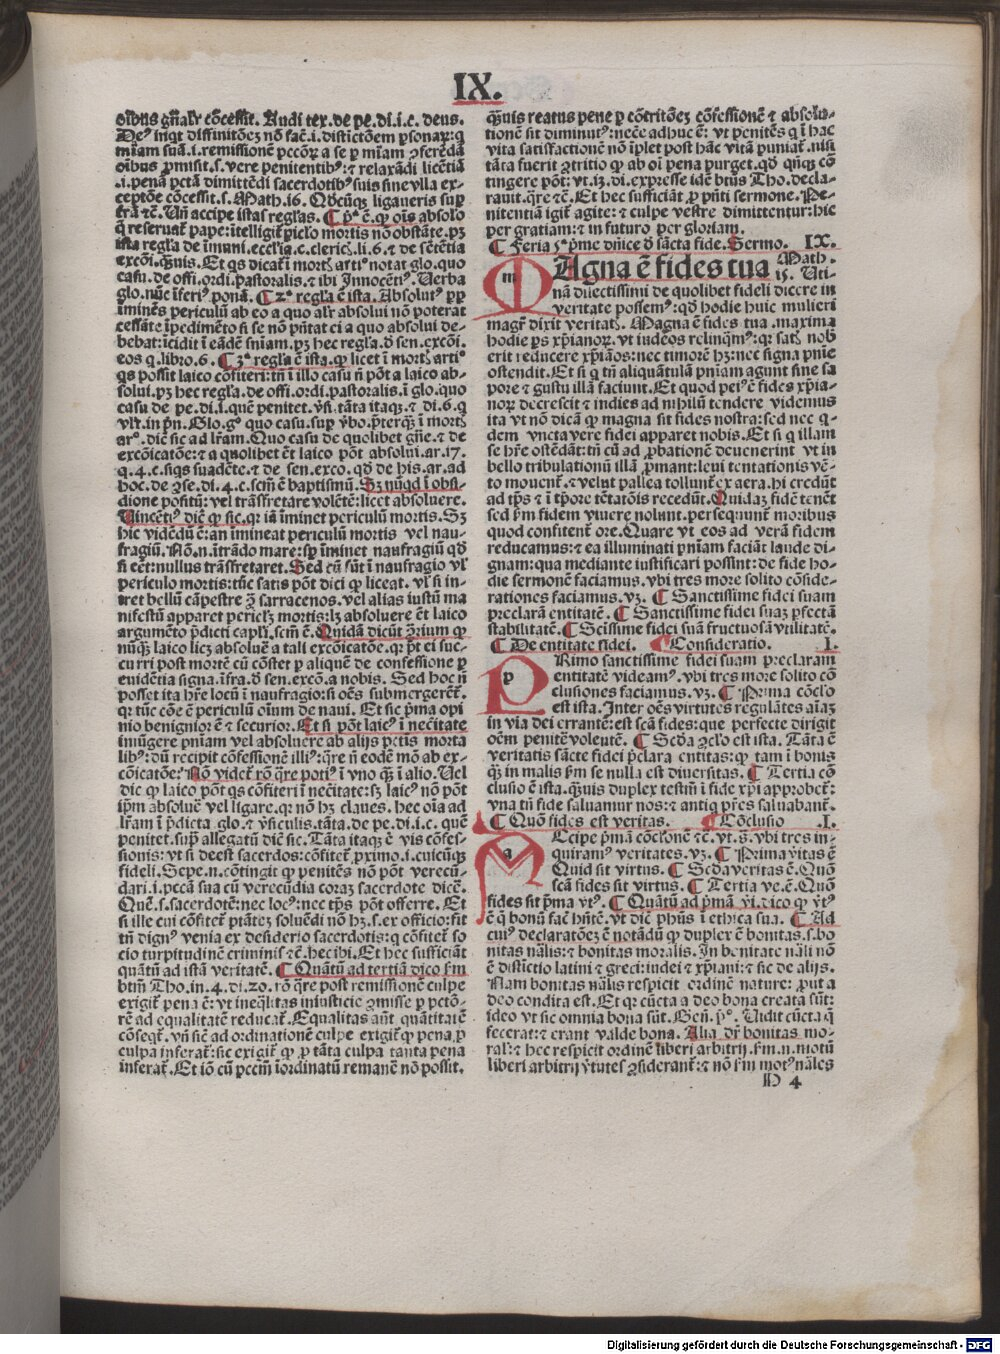 IX.
oībus gn̄alr̄ cōcessit. Audi tex. de pe. di. i. c. deus.
Deꝰ inqt diffinitōeȝ nō fac̄. i. distictōem ꝑsonaꝝ: q
mīam suā. i. remissionē pccōꝝ a se ꝑ mīam ꝯferēdā
oībus ꝓmisit. s. vere penitentibꝰ: ⁊ relaxādi licētiā
.i. penā pctā dimittēdi sacerdotibꝰ suis sine vlla ex-
ceptōe cōcessit. s. Math. 16. Qd̄cūqꝫ ligaueris suꝑ
frā ⁊c̄. Vn̄ accipe istas regl̄as. ¶ pͥa ē. ꝙ oīs absol̓o
q̄ reseruat̄ pape: ītelligit̄ piclo mortis nō obstāte. pꝫ
ista regl̓a de īmuni. eccl̓ia. c. cleric̄. li. 6. ⁊ de sētētia
excōi. q̄uis. Et qs dicat̄ ī mortꝭ artiꝰ notat glo. quo
casu. de offi. ordi. pastoralis. ⁊ ibi Innocētiꝰ. Verba
glo. nūc īseriꝰ ponā. ¶ 2ͣ regl̓a ē ista. Absolutꝰ ꝓp
iminēs periculū ab eo a quo alr̄ absolui nō poterat
cessāte īpedimēto si se nō pn̄tat ei a quo absolui de-
bebat: īcidit ī eādē sniam. pꝫ hec regl̓a. d̄ sen. excōi.
eos q. libro. 6. ¶ 3ͣ regl̓a ē ista. ꝙ licet ī mortꝭ artiꝰ
qs possit laico cōfiteri: tn̄ ī illo casu n̄ pōt a laico ab-
solui. pꝫ hec regl̓a. de offi. ordi. pastoralis. ī glo. quo
casu de pe. di. i. quē penitet. v̓si. tāta itaqꝫ. ⁊ di. 6. q
vl̓t. in pn̄. Glo. gͦ quo casu. suꝑ v̓bo. p̄terqꝫ ī mortꝭ
arͦ. dic̄ sic ad lr̄am. Quo casu de quolibet gn̄e. ⁊ de
excōicatōe: ⁊ a quolibet ēt laico pōt absolui. ar. 17.
q. 4. c. siqs suadēte. ⁊ de sen. exco. qd̄ de his. ar. ad
hoc. de ꝯse. di. 4. c. scm̄ ē baptismū. Sꝫ nūqd ī obsi-
dione positū: vel trāsfretare volētē: licet absoluere.
Vincētiꝰ dic̄ ꝙ sic. qꝛ iā īminet periculū mortis. Sꝫ
hic vidēdū ē: an īmineat periculū mortis vel nau-
fragiū. Nō. n. ītrādo mare: sꝑ īminet naufragiū qd̄
si eēt: nullus trāsfretaret. Sed cū sūt ī naufragio vl̓
periculo mortis: tūc satis pōt dici ꝙ liceat. vl̓ si in-
tret bellū cāpestre ꝯ̄ sarracenos. vel alias iustū ma
nifestū apparet pericl̓ꝫ mortis: lꝫ absoluere ēt laico
argumēto p̄dicti capl̓i. scm̄ ē. Quidā dicūt ꝯ̄rium ꝙ
nūqꝫ laico licꝫ absoluē a tali excōicatōe. qꝛ pt̄ ei suc-
curri post mortē cū cōstet ꝑ aliquē de confessione ꝑ
euidētia signa. īfra. d̄ sen. excō. a nobis. Sed hoc n̄
posset ita hr̄e locū ī naufragio: si oēs submergerēt̄.
qꝛ tūc cōe ē periculū oium de naui. Et sic pͥma opi
nio benignior ē ⁊ securior. Et si pōt laicꝰ ī necītate
iniūgere pniam vel absoluere ab alijs pctīs morta
libꝰ: dū recipit cōfessionē illiꝰ: q̄re n̄ eodē mō ab ex-
cōicatōe: Nō videt̄ rō q̄re potiꝰ ī vno qꝫ ī alio. Vel
dic ꝙ laico pōt qs cōfiteri ī necītate: sꝫ laicꝰ nō pōt
ipm̄ absoluē vel ligare. qꝛ nō hꝫ claues. hec oīa ad
lr̄am ī p̄dicta glo. ⁊ v̓siculis. tāta. de pe. di. i. c. quē
penitet. suꝑ allegatū dic̄ sic. Tāta itaqꝫ ē vis cōfes-
sionis: vt si deest sacerdos: cōfitet̄ ꝓximo. i. cuicūqꝫ
fideli. Sepe. n. cōtingit ꝙ penitēs nō pōt verecū-
dari. i. pccā sua cū verecūdia coraꝫ sacerdote dicē.
Quē. s. sacerdotē: nec locꝰ: nec tp̄s pōt offerre. Et
si ille cui cōfitet̄ ptātēꝫ soluēdi nō hꝫ. s. ex officio: fit
tn̄ dignꝰ venia ex desiderio sacerdotis: q cōfitet̄ so
cio turpitudinē criminis ⁊c̄. hec ibi. Et hec sufficiāt
quātū ad istā veritatē. ¶ Quātū ad tertiā dico sm̄
btm̄ Tho. in. 4. di. 20. rō q̄re post remissionē culpe
exigit̄ pena ē: vt ineq̄litas iniusticie ꝯmisse ꝑ pctō-
rē ad equalitatē reducat̄. Equalitas aūt quātitatē
cōseqt̄. vn̄ sic̄ ad ordinationē culpe exigit̄ ꝙ pena ꝑ
culpa inferat̄: sic exigit̄ ꝙ ꝓ tāta culpa tanta pena
inferat̄. Et iō cū pccm̄ īordinatū remanē nō possit.
q̄uis reatus pene ꝑ cōtritōeꝫ cōfessionē ⁊ absolu-
tionē sit diminutꝰ: necc̄e adhuc ē: vt penitēs q ī hac
vita satisfactionē nō īplet post hāc vitā puniat̄. nisi
tāta fuerit ꝯtritio ꝙ ab oī pena purget. qd̄ qn̄qꝫ cō
tingere pōt: vt. 13. di. expresse idē btūs Tho. decla-
rauit. q̄re ⁊c̄. Et hec sufficiāt ꝓ pn̄ti sermone. Pe-
nitentiā igit̄ agite: ⁊ culpe vestre dimittentur: hic
per gratiam: ⁊ in futuro per gloriam.
¶ Feria 5ͣ pͥme dn̄ice d̄ sācta fide. Sermo. IX.
MAgna ē fides tua Math.
15. Uti-
nā dilectissimi de quolibet fideli dicere in
veritate possemꝰ: qd̄ hodie huic mulieri
magr̄ dixit veritatꝭ. Magna ē fides tua. maxima
hodie ps xp̄ianoꝝ. vt iudeos relinqm̄ꝰ: qꝛ satꝭ nob̄
erit reducere xp̄iāos: nec timorē hꝫ: nec signa pn̄ie
ostendit. Et si q tn̄ aliquātulā pn̄iam agunt sine sa
pore ⁊ gustu illā faciunt. Et quod peiꝰ ē fides xp̄ia-
noꝝ decrescit ⁊ indies ad nihilū tendere videmus
ita vt nō dicā ꝙ magna sit fides nostra: sed nec q-
dem vncta vere fidei apparet nobis. Et si q illam
se hr̄e ostēdāt: tn̄ cū ad ꝓbationē deuenerint vt in
bello tribulationū illā ꝓmant: leui tentationis vē-
to mouent̄. ⁊ velut pallea tollunt̄ ex aera. hi credūt
ad tp̄s ⁊ ī tp̄ore tētatōis recedūt. Quidaꝫ fidē tenēt
sed pͥm fidem viuere nolunt. persequunt̄ moribus
quod confitent̄ ore. Quare vt eos ad verā fidem
reducamus: ⁊ ea illuminati pniam faciāt laude di-
gnam: qua mediante iustificari possint: de fide ho-
die sermonē faciamus. vbi tres more solito cōside-
rationes faciamus. vꝫ. ¶ Sanctissime fidei suam
preclarā entitatē. ¶ Sanctissime fidei suaꝫ ꝑfectā
stabilitatē. ¶ Sctissime fidei suā fructuosā vtilitatē.
¶ De entitate fidei. ¶ Consideratio. I.
PRimo sanctissime fidei suam preclaram
entitatē videamꝰ. vbi tres more solito cō
clusiones faciamus. vꝫ. ¶ Prima cōcl̓o
est ista. Inter oēs virtutes regulātes aīaꝫ
in via dei errantē: est scā fides: que perfecte dirigit
oēm penitē volentē. ¶ Scd̓a ꝯcl̓o est ista. Tāta ē
veritatis sācte fidei p̄clara entitas: ꝙ tam ī bonis
qꝫ in malis sm̄ se nulla est diuersitas. ¶ Tertia cō
clusio ē ista. q̄uis duplex testm̄ ī fide xp̄i approbet̄:
vna tn̄ fide saluamur nos: ⁊ antiq pr̄es saluabant̄.
¶ Quō fides est veritas. ¶ Cōclusio .I.
AEcipe pͥmā cōcl̓onē ⁊c̄. vt. s̄. vbi tres in-
quiramꝰ veritates. vꝫ. ¶ Prima v̓itas ē
Quid sit virtus. ¶ Scd̓a veritas ē. Quō
scā fides sit virtus. ¶ Tertia ve. ē. Quō
fides sit pͥma v̓tꝰ. ¶ Quātū ad pͥmā v̓i. dico ꝙ v̓tꝰ
ē q̄ bonū fac̄ hn̄tē. vt dic̄ ph̄us ī ethica sua. ¶ Ad
cuiꝰ declaratōeꝫ ē notādū ꝙ duplex ē bonitas. s. bo
nitas nālis: ⁊ bonitas moralis. In bonitate nāli nō
ē distīctio latini ⁊ greci: iudei ⁊ xp̄iani: ⁊ sic de alijs.
Nam bonitas nālis respicit ordinē nature: ꝓut a
deo condita est. Et qꝛ cūcta a deo bona creata sūt:
ideo vt sic omnia bona sūt. Gen̄. pͦ. Vidit cūcta q̄
fecerat: ⁊ erant valde bona. Alia dr̄ bonitas mo-
ral̓: ⁊ hec respicit ordinē liberi arbitrij. sm̄. n. motū
liberi arbitrij v̓tutes ꝯsiderant̄: ⁊ nō sm̄ motꝰ nāles
D 4
Digitalisierung gefördert durch die Deutsche Forschungsgemeinschaft - DFG